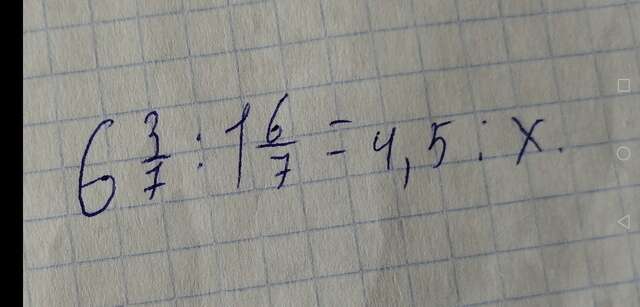 6 3/7 : 1 6/7 = 4,5 : x.